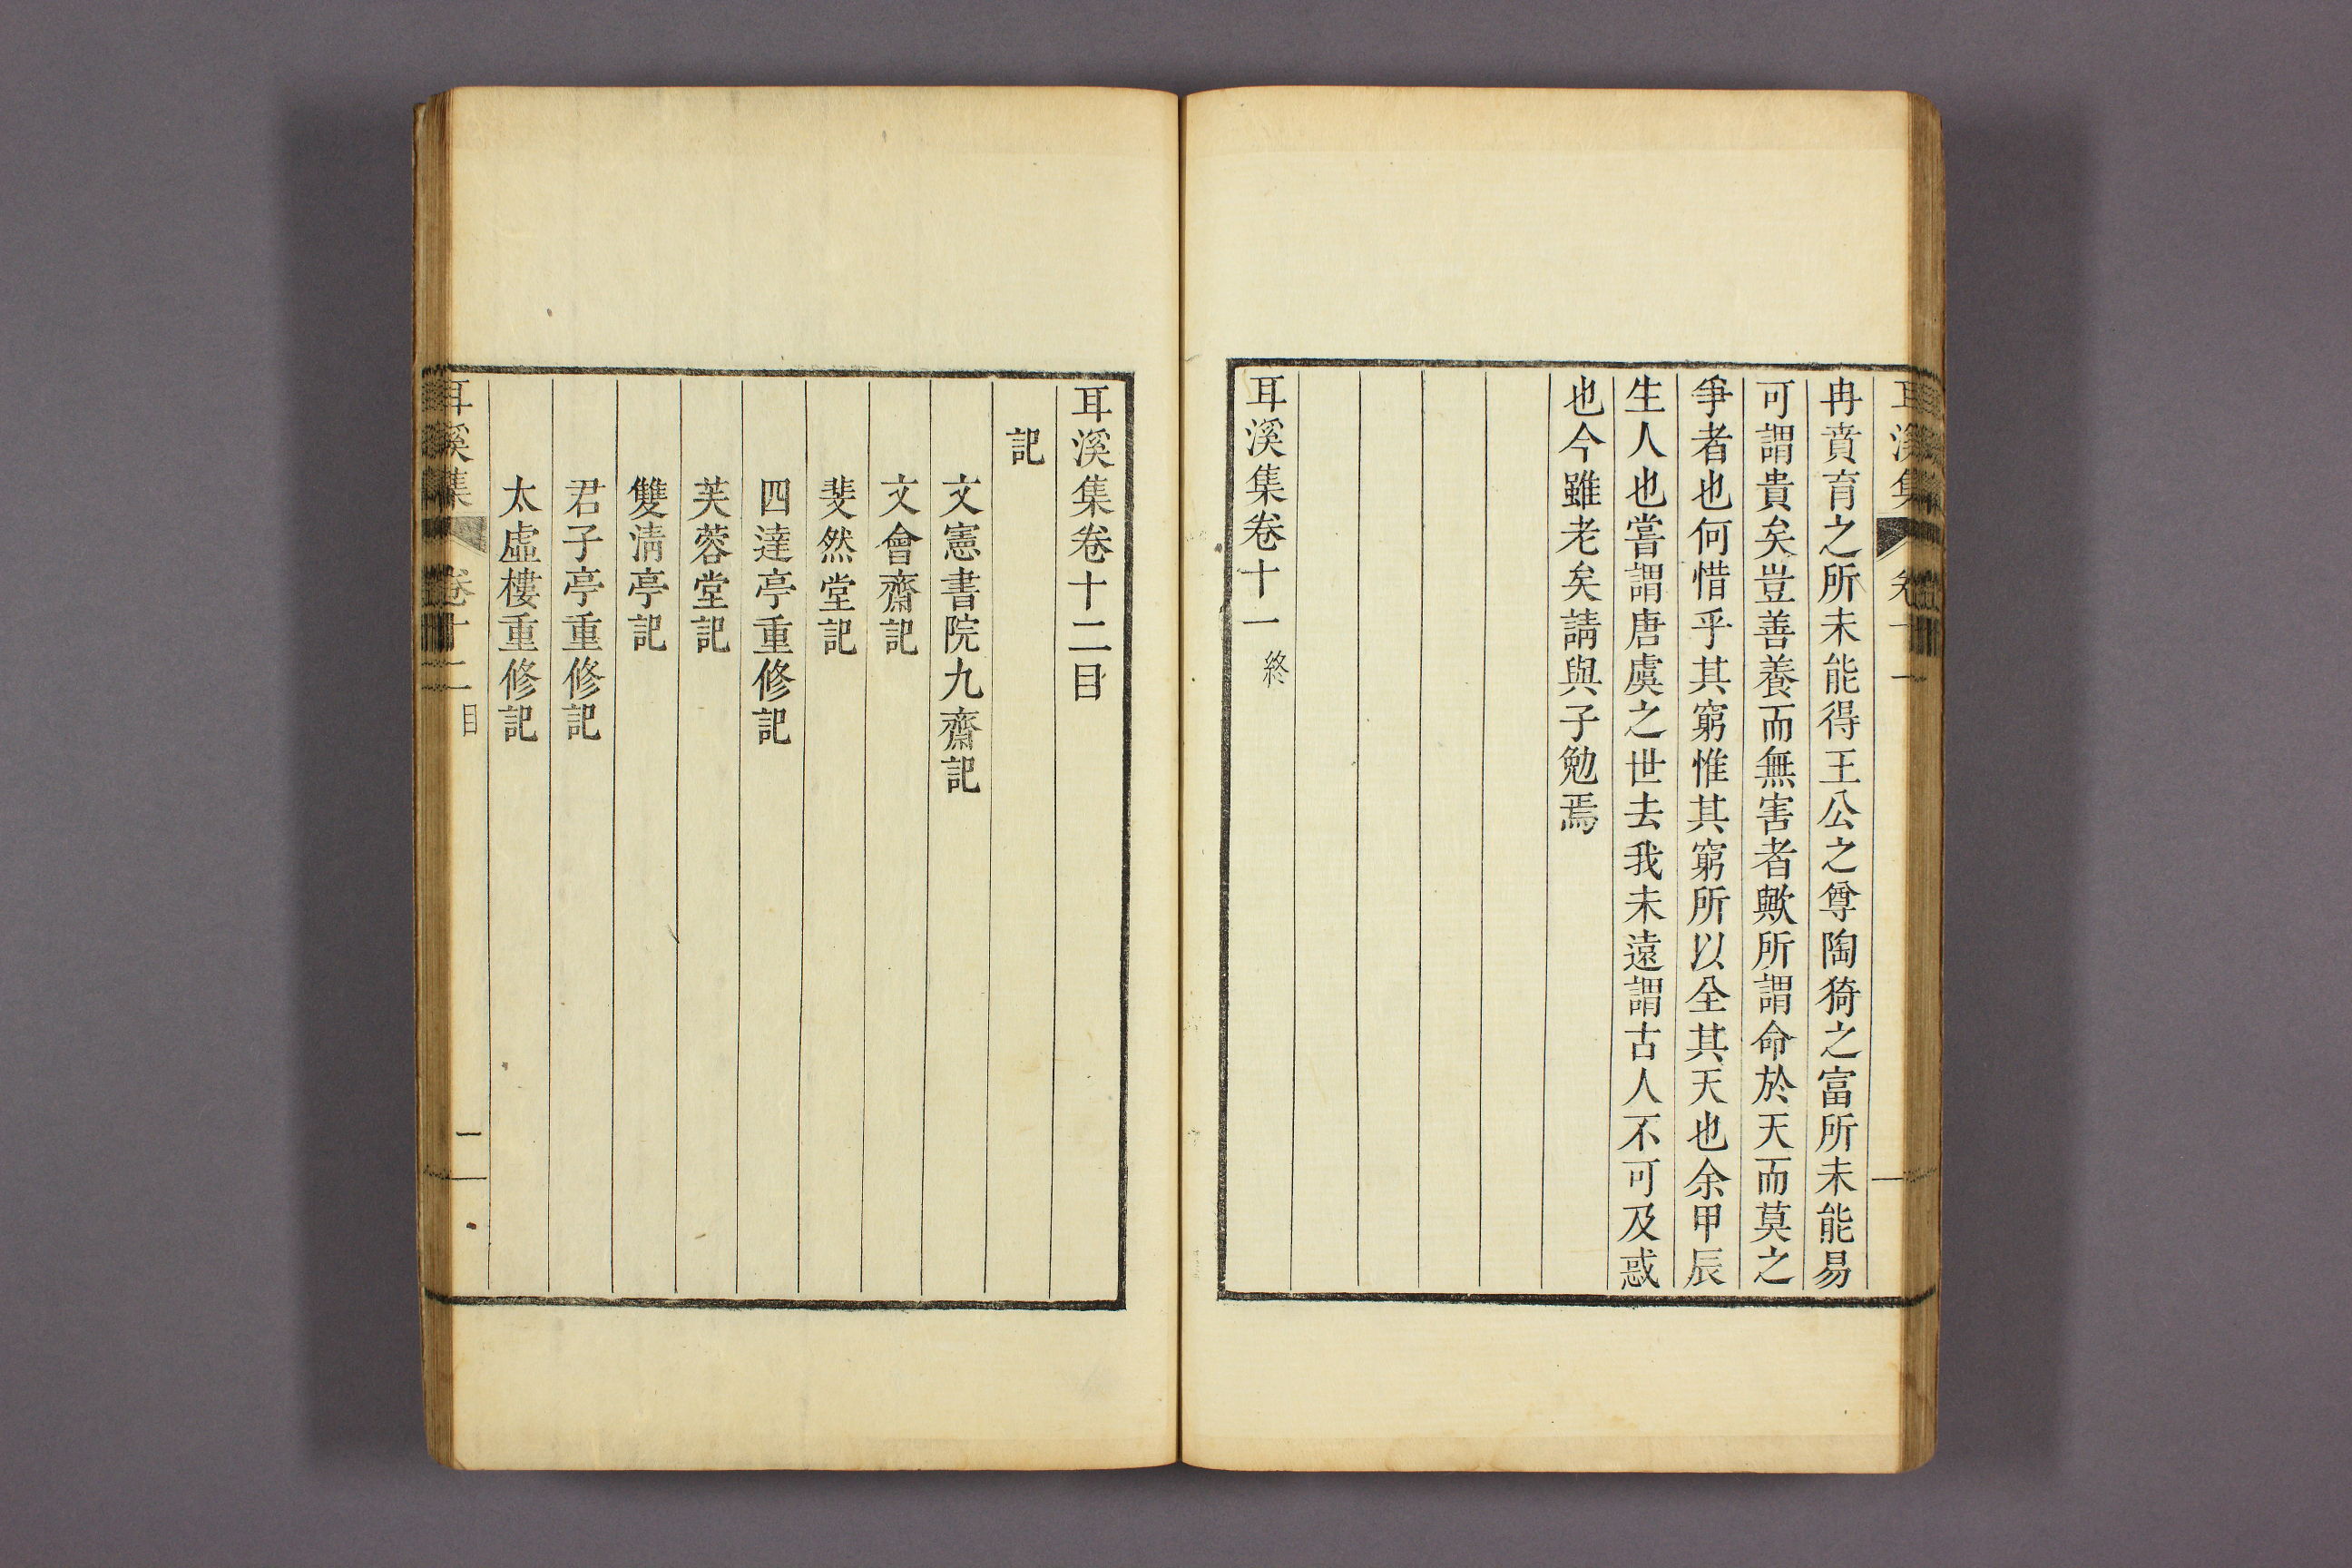 冉賁育之所未能得王公之尊陶猗之富所未能易
可謂貴矣豈善養而無害者歟所謂命於天而莫之
爭者也何惜乎其窮惟其窮所以全其天也余甲辰
生人也嘗謂唐虞之世去我未遠謂古人不可及惑
也今雖老矣請與子勉焉
耳溪集卷十一 終
耳溪集卷十二目
記
文憲書院九齋記
文會齋記
斐然堂記
四達亭重修記
芙蓉堂記
雙淸亭記
君子亭重修記
太虛樓重修記
耳溪集 卷十二 目 一